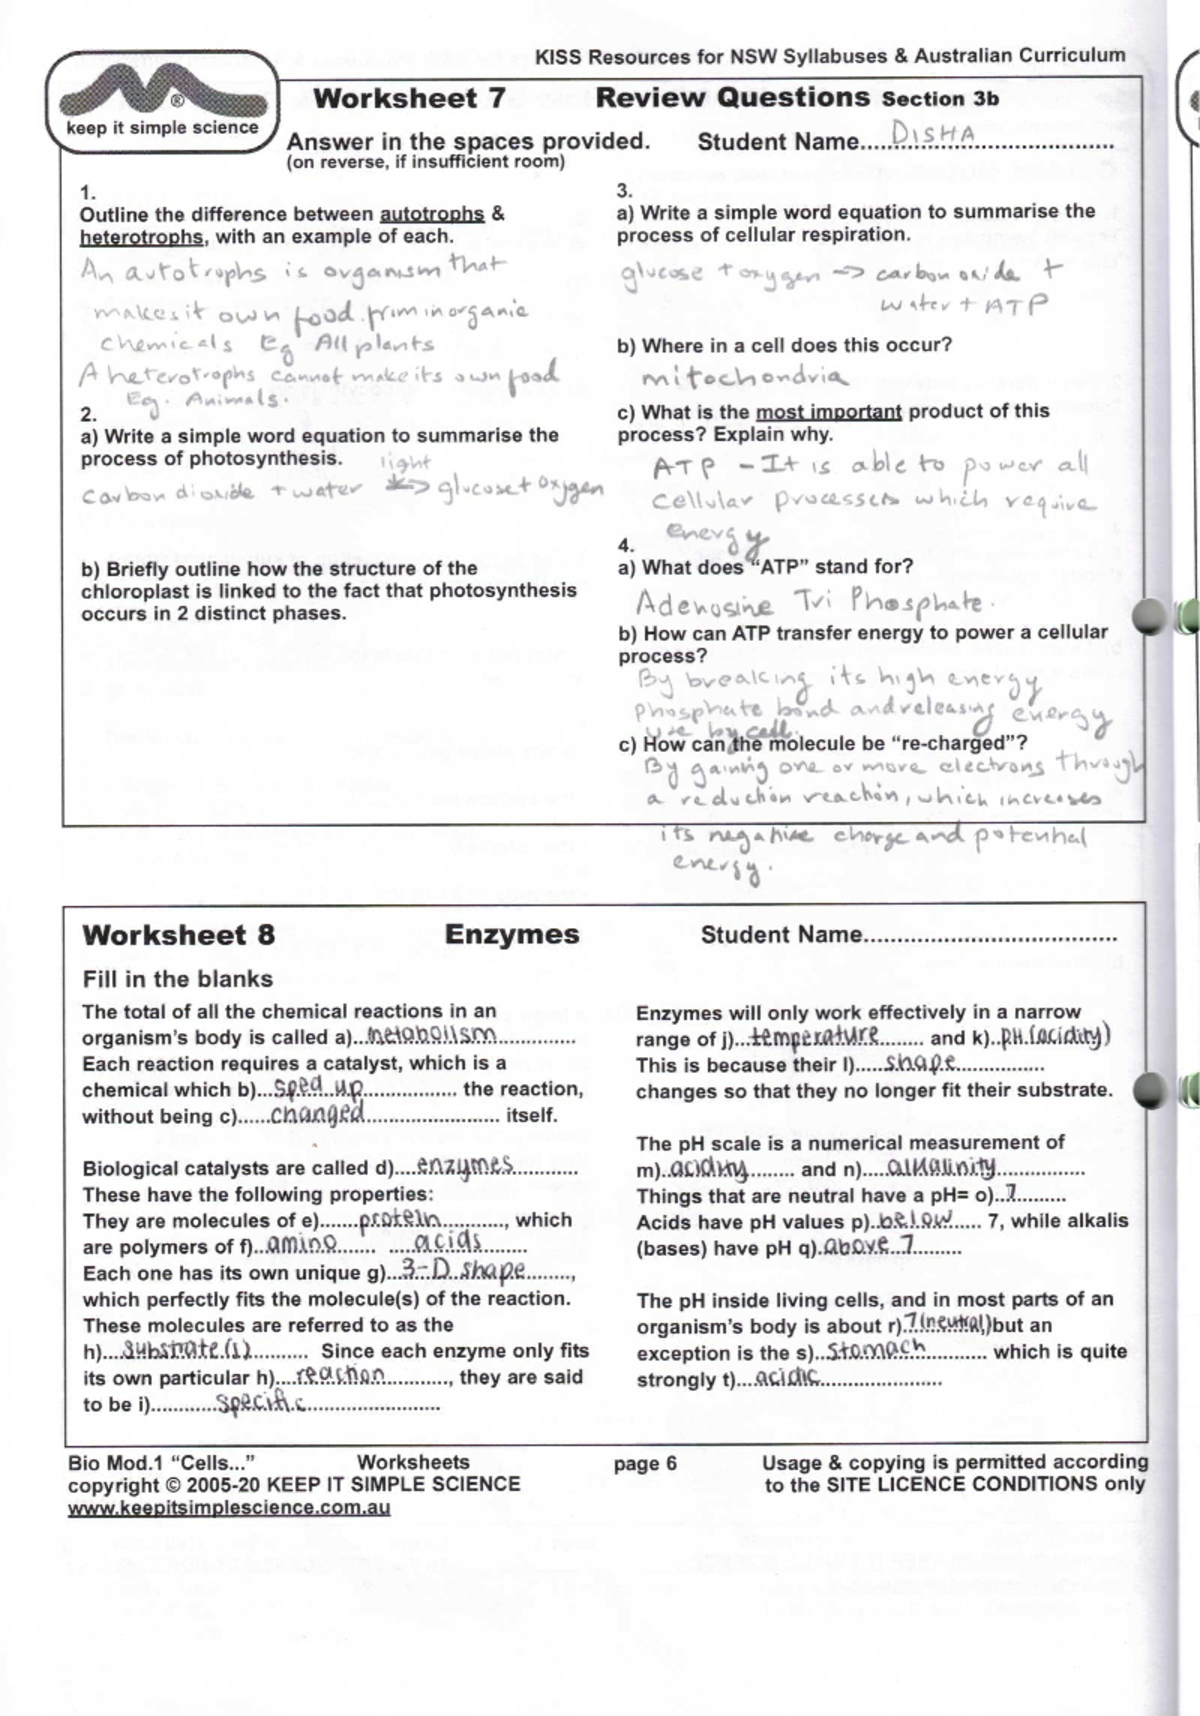 KISS Resources for NSW Syllabuses & Australian Curriculum
®
keep it simple science
Worksheet 7 Review Questions Section 3b
Answer in the spaces provided. Student Name....DISHA....
(on reverse, if insufficient room)
1.
Outline the difference between autotrophs &
heterotrophs, with an example of each.
An autotrophs is organism that
makes it own food frim inorganic
chemicals Eg All plants
A heterotrophs cannot make its own food
Eg. Animals.
2.
a) Write a simple word equation to summarise the
process of photosynthesis.
light
carbon dioxide + water -> glucose + oxygen
b) Briefly outline how the structure of the
chloroplast is linked to the fact that photosynthesis
occurs in 2 distinct phases.
3.
a) Write a simple word equation to summarise the
process of cellular respiration.
glucose + oxygen -> carbon oxide +
water + ATP
b) Where in a cell does this occur?
mitochondria
c) What is the most important product of this
process? Explain why.
ATP - It is able to power all
cellular processes which require
energy
4.
a) What does “ATP” stand for?
Adenosine Tri Phosphate.
b) How can ATP transfer energy to power a cellular
process?
By breaking its high energy
phosphate bond and releasing energy
use by cell.
c) How can the molecule be “re-charged”?
By gaining one or more electrons through
a reduction reaction, which increases
its negative charge and potential
energy.
Worksheet 8 Enzymes Student Name......................................
Fill in the blanks
The total of all the chemical reactions in an
organism’s body is called a)..metabolism..............
Each reaction requires a catalyst, which is a
chemical which b)...sped up................ the reaction,
without being c).....changed....................... itself.
Biological catalysts are called d)....enzymes............
These have the following properties:
They are molecules of e).......protein..........., which
are polymers of f)..amino...... ....acids........
Each one has its own unique g)...3-D shape.......,
which perfectly fits the molecule(s) of the reaction.
These molecules are referred to as the
h)....substrate(s).......... Since each enzyme only fits
its own particular h)...reaction..........., they are said
to be i)............specific......................
Enzymes will only work effectively in a narrow
range of j)...temperature........ and k)..pH (acidity)
This is because their l).....shape...............
changes so that they no longer fit their substrate.
The pH scale is a numerical measurement of
m)..acidity........ and n)....alkalinity..............
Things that are neutral have a pH= o)..7.........
Acids have pH values p)..below..... 7, while alkalis
(bases) have pH q).above 7.........
The pH inside living cells, and in most parts of an
organism’s body is about r).7(neutral)but an
exception is the s)..Stomach........... which is quite
strongly t)...acidic...................
Bio Mod.1 “Cells...” Worksheets page 6 Usage & copying is permitted according
copyright © 2005-20 KEEP IT SIMPLE SCIENCE to the SITE LICENCE CONDITIONS only
www.keepitsimplescience.com.au